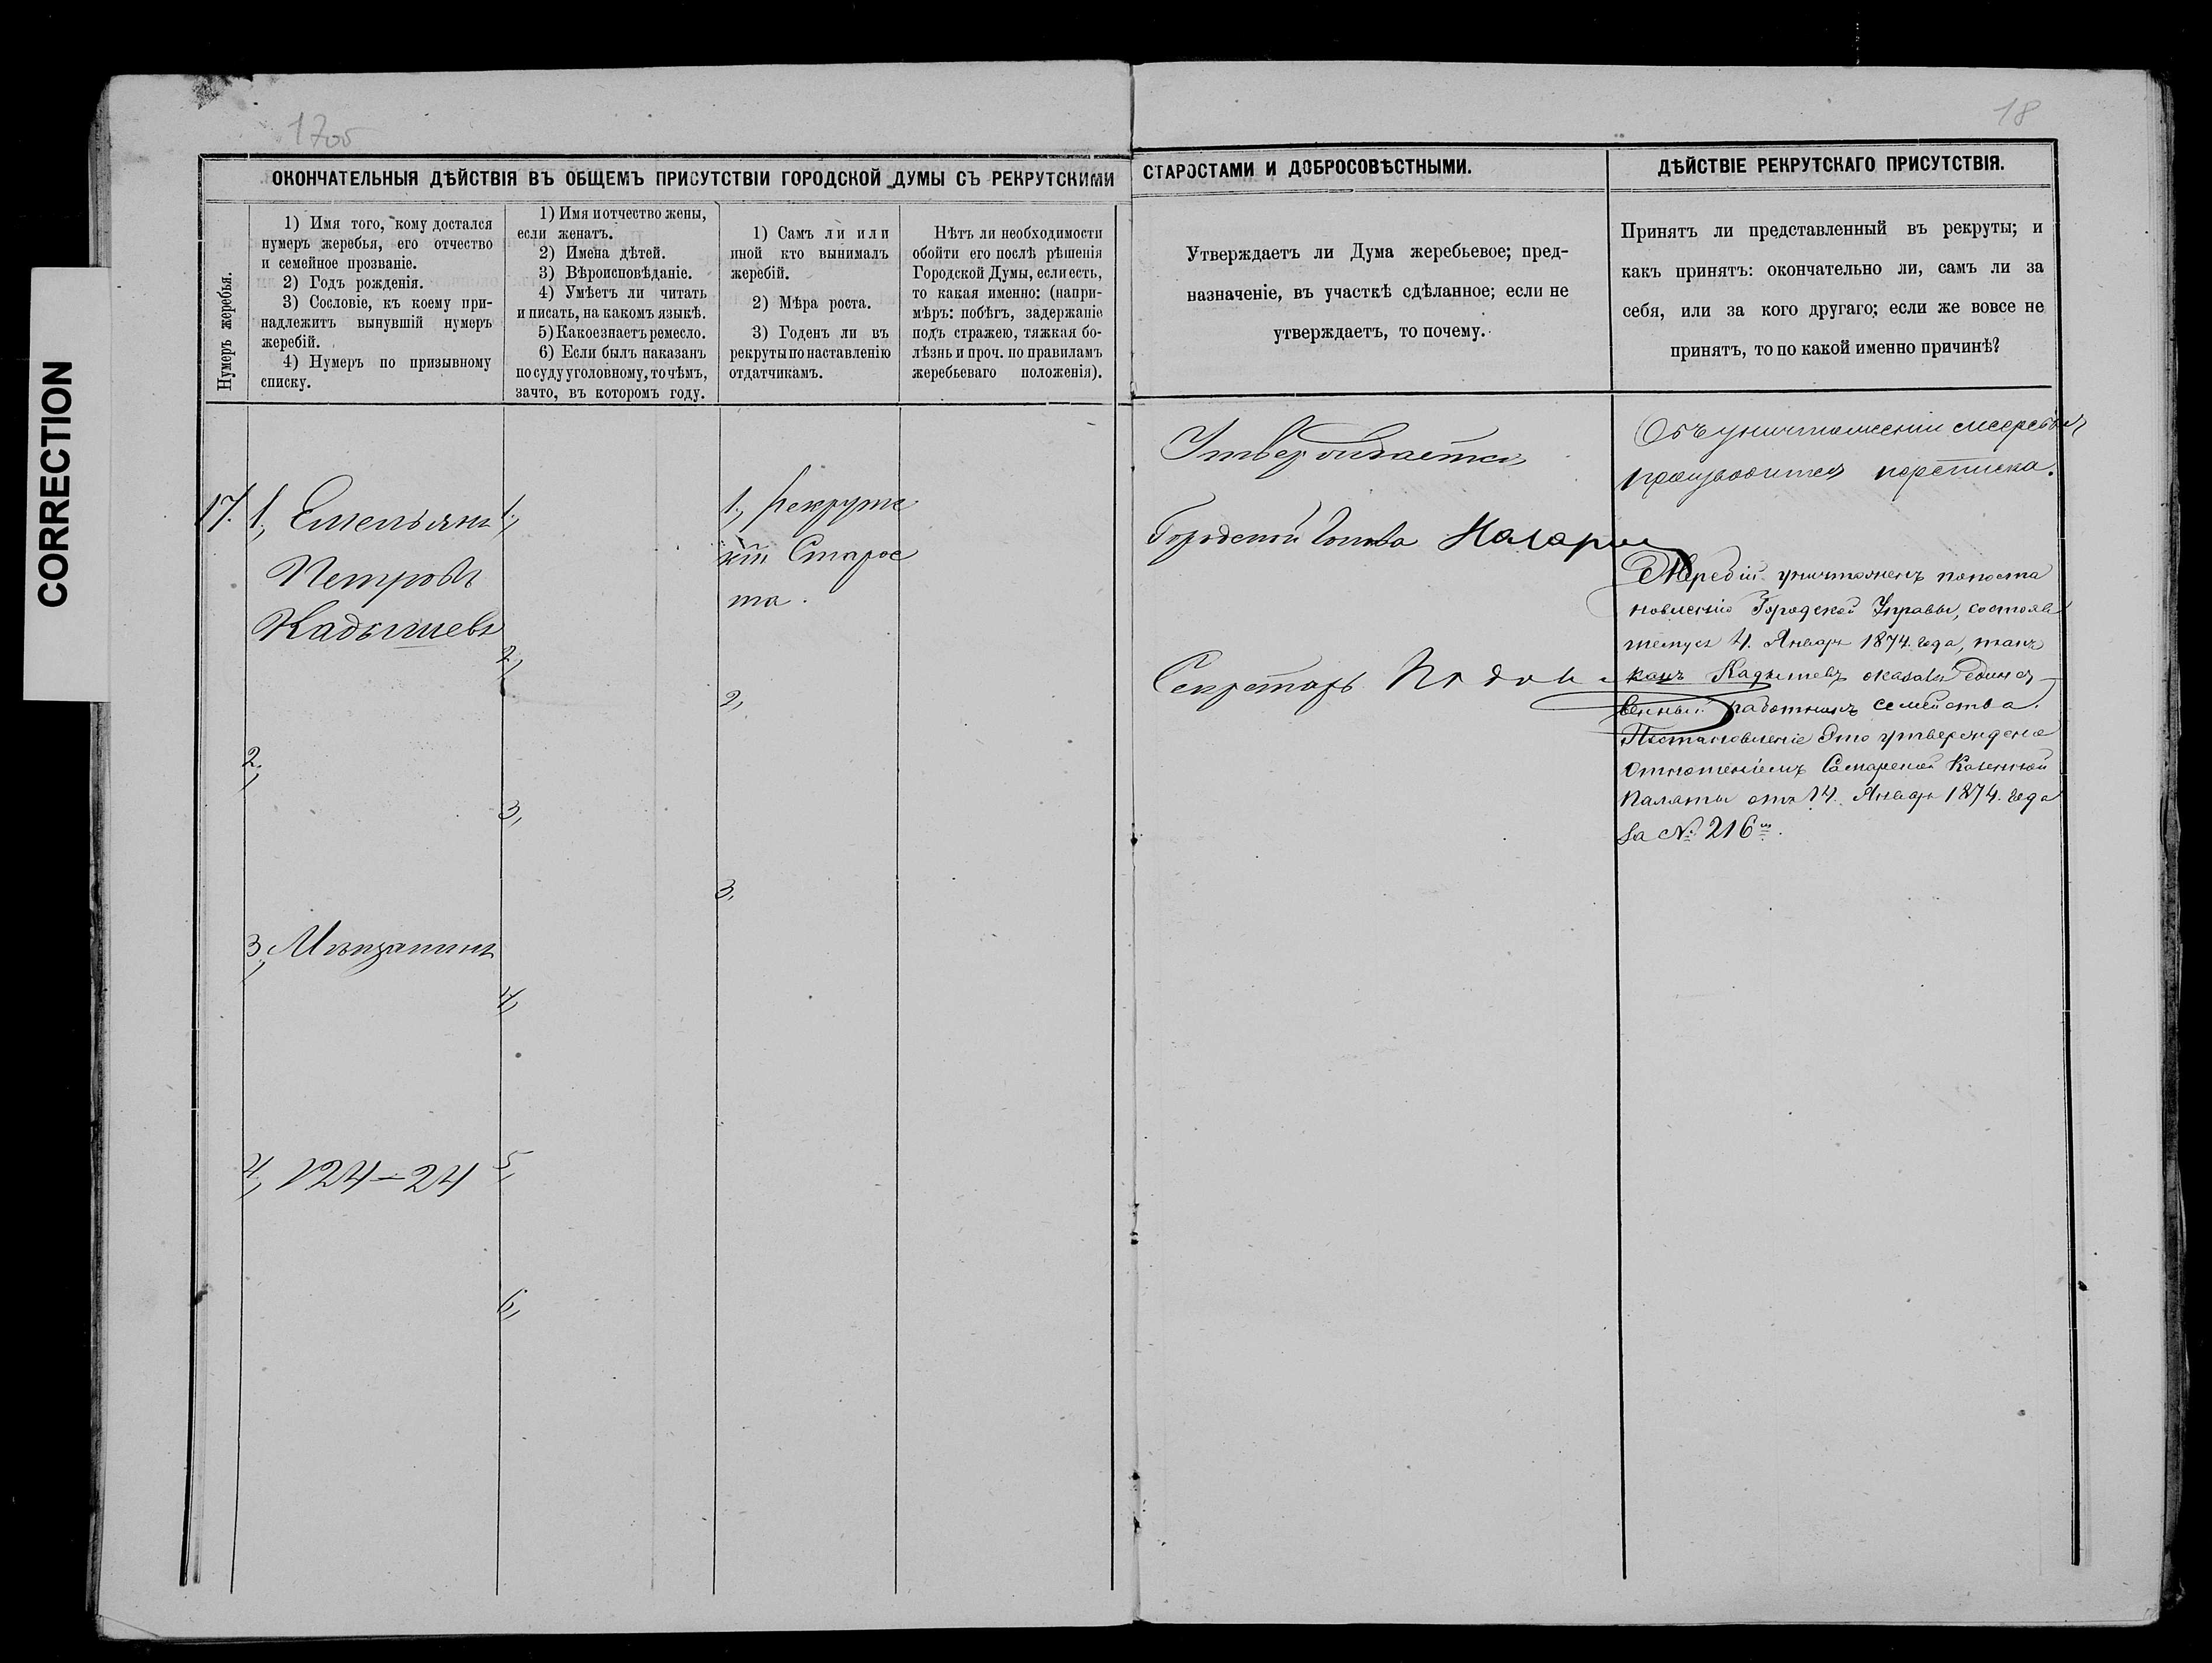 CORRECTION
17об
18
ОКОНЧАТЕЛЬНЫЯ ДѢЙСТВІЯ ВЪ ОБЩЕМЪ ПРИСУТСТВІИ ГОРОДСКОЙ ДУМЫ СЪ РЕКРУТСКИМИ
Нумеръ жеребья.
1) Имя того, кому достался
нумеръ жеребья, его отчество
и семейное прозваніе.
2) Годъ рожденія.
3) Сословіе, къ коему при-
надлежитъ вынувшій нумеръ
жеребій.
4) Нумеръ по призывному
списку.
1) Имя и отчество жены,
если женатъ.
2) Имена дѣтей.
3) Вѣроисповѣданіе.
4) Умѣетъ ли читать
и писать, на какомъ языкѣ.
5) Какое знаетъ ремесло.
6) Если былъ наказанъ
по суду уголовному, то чѣмъ,
за что, въ которомъ году.
1) Самъ ли или
иной кто вынималъ
жеребій.
2) Мѣра роста.
3) Годенъ ли въ
рекруты по наставленію
отдатчикамъ.
Нѣтъ ли необходимости
обойти его послѣ рѣшенія
Городской Думы, если есть,
то какая именно: (напри-
мѣръ: побѣгъ, задержаніе
подъ стражею, тяжкая бо-
лѣзнь и проч. по правиламъ
жеребьеваго положенія).
17.
1, Емельянъ
Петровъ
Кадышевъ
2,
3, Мѣщанинъ
4, 124-24
1,
2,
3,
4,
5,
6,
1, рекрутс
кій Старос
та.
2,
3,
СТАРОСТАМИ И ДОБРОСОВѢСТНЫМИ.
Утверждаетъ ли Дума жеребьевое; пред-
назначеніе, въ участкѣ сдѣланное; если не
утверждаетъ, то почему.
Утверждается
Городской Голова Назаров
Секретарь
ДѢЙСТВІЕ РЕКРУТСКАГО ПРИСУТСТВІЯ.
Принятъ ли представленный въ рекруты; и
какъ принятъ: окончательно ли, самъ ли за
себя, или за кого другаго; если же вовсе не
принятъ, то по какой именно причинѣ?
Объ уничтоженіи жеребья
производится переписка.
Жеребій уничтоженъ по поста
новленію Городской Управы, состояв
шемуся 4. Января 1874. года, такъ
какъ Кадышевъ оказался единст
венный работникъ семейства.
Постановленіе это утверждено
отношеніемъ Самарской Казенной
Палаты отъ 14. Января 1874. года
за № 216мъ.